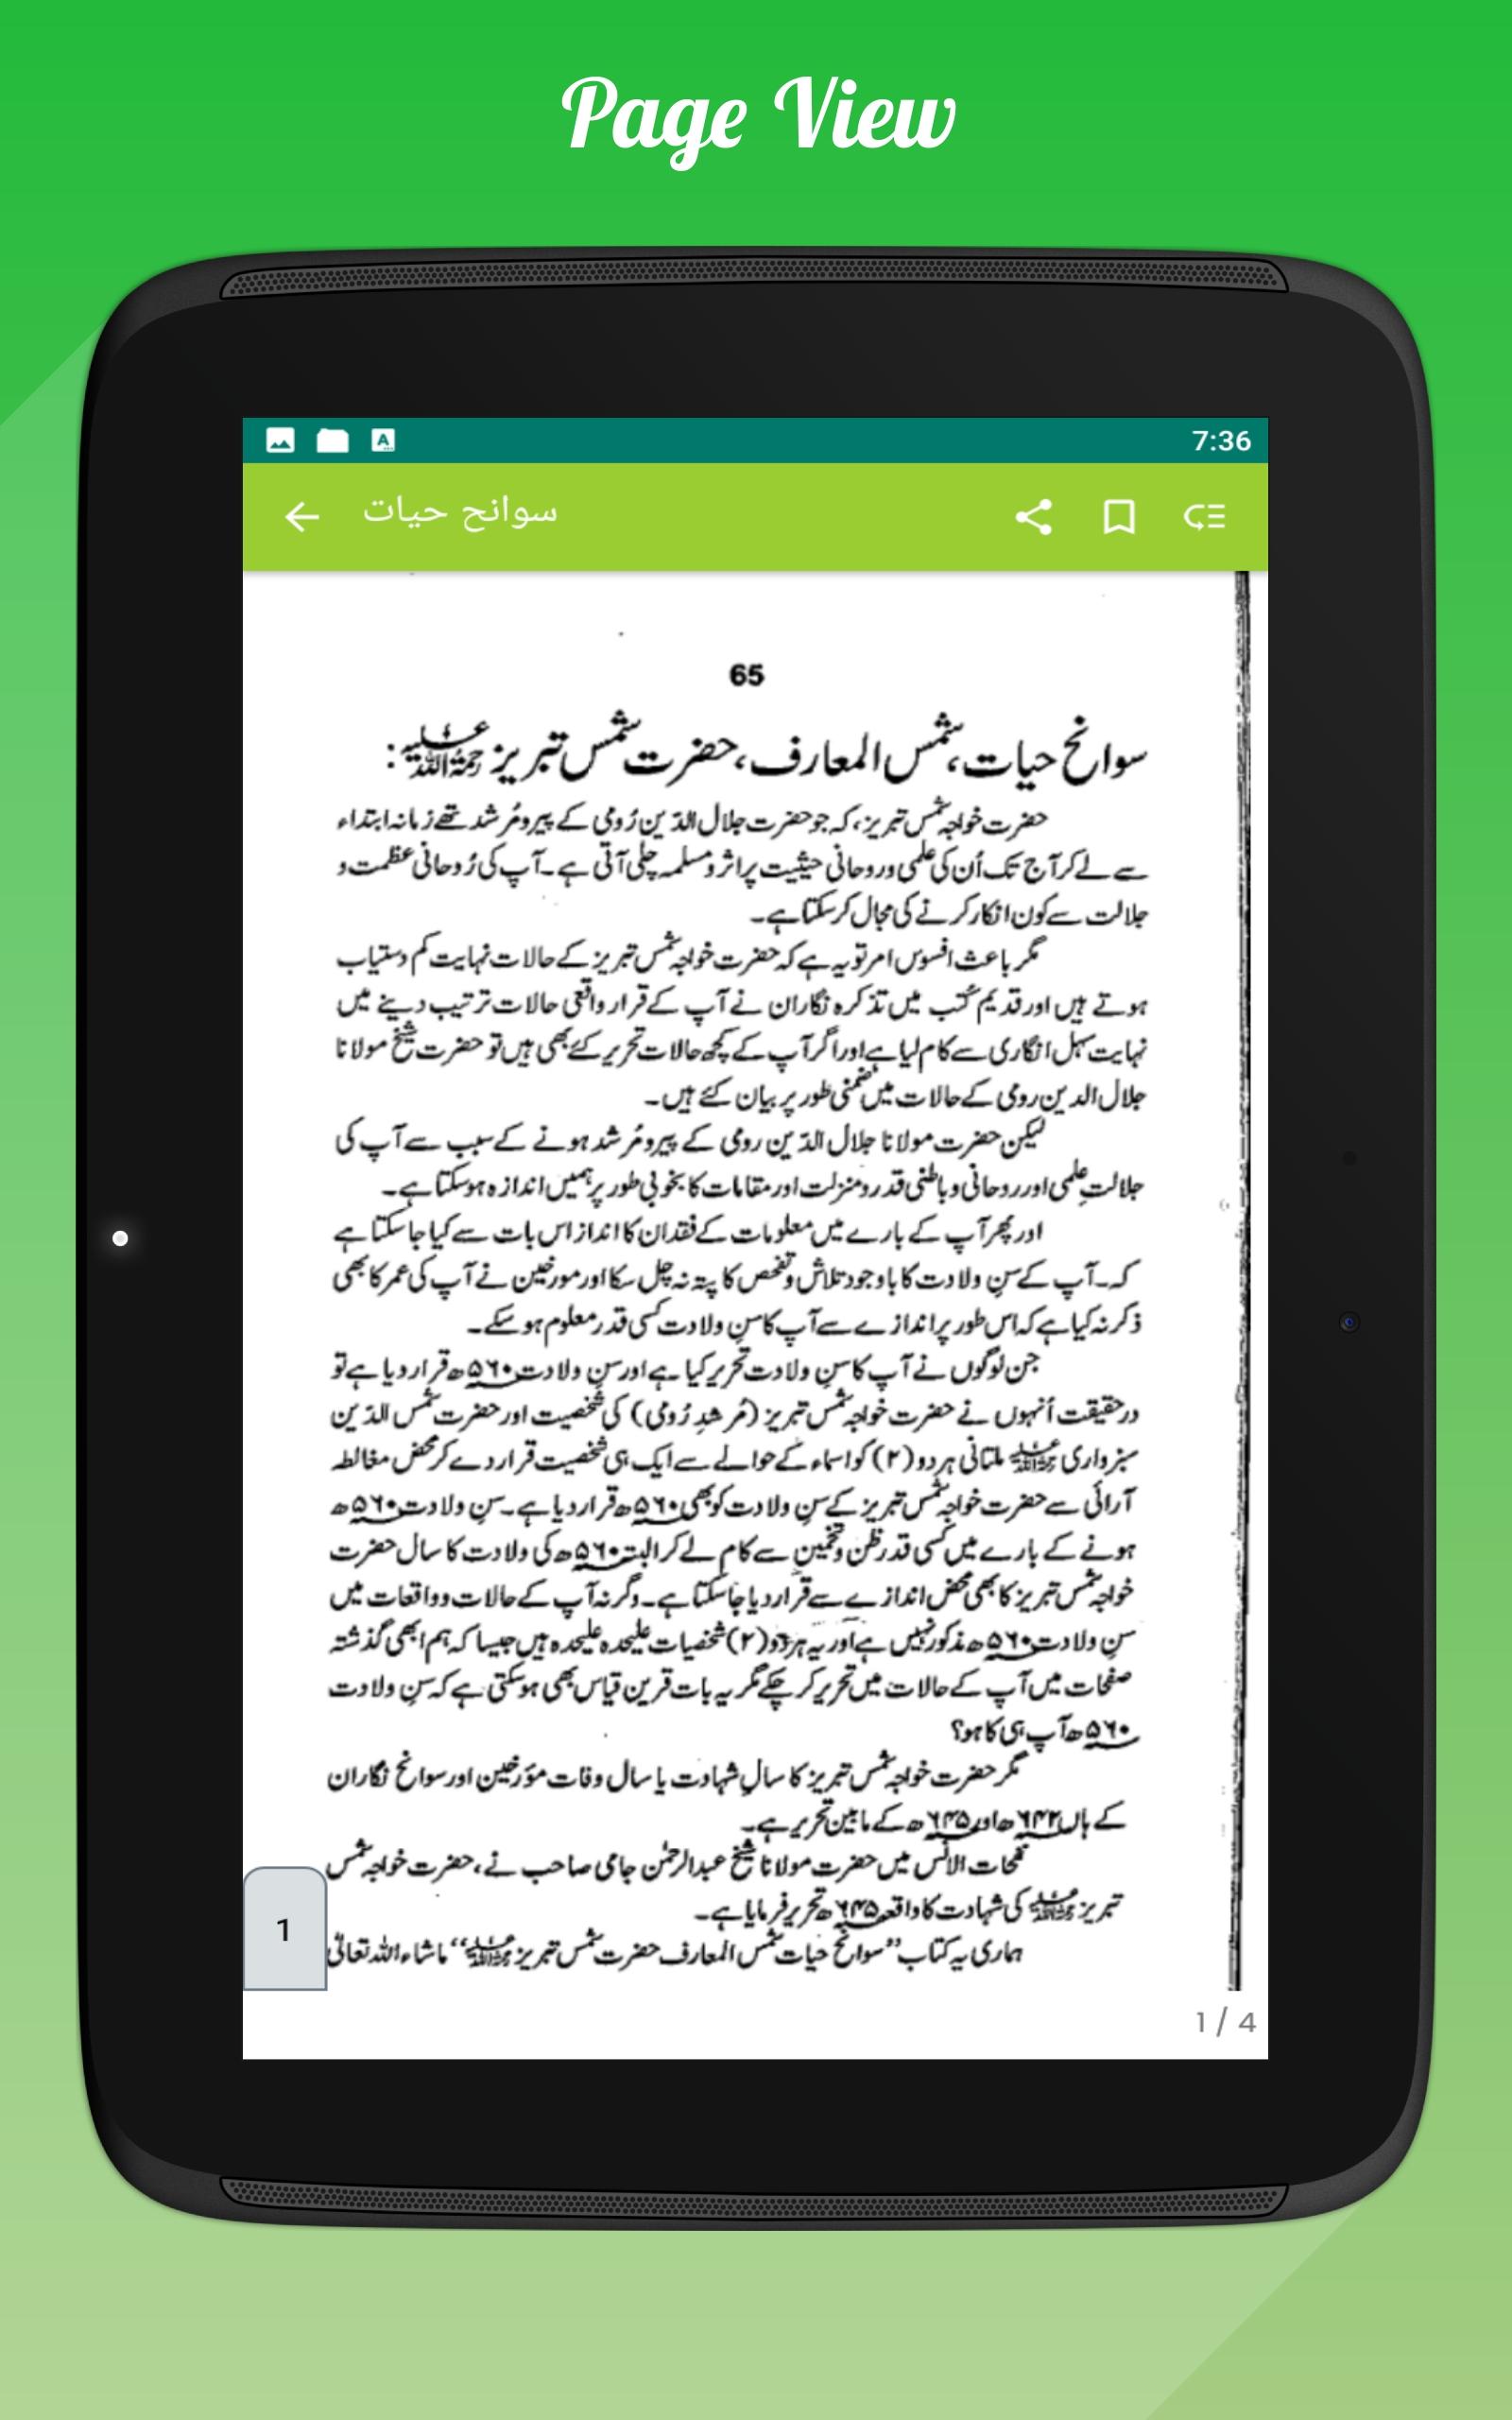 Page View
7:36
سوانح حیات
65
سوانح حیات، شمس المعارف، حضرت شمس تبریز رحمۃ اللہ علیہ:
حضرت خواجہ شمس تبریز، کہ جو حضرت جلال الدّین رُومی کے پیر و مُرشد تھے زمانہ ابتداء
سے لے کر آج تک اُن کی علمی و روحانی حیثیت پر اثر و مسلمہ چلی آتی ہے۔ آپ کی رُوحانی عظمت و
جلالت سے کون انکار کرنے کی مجال کر سکتا ہے۔
مگر باعث افسوس امر تو یہ ہے کہ حضرت خواجہ شمس تبریز کے حالات نہایت کم دستیاب
ہوتے ہیں اور قدیم کُتب میں تذکرہ نگاران نے آپ کے قرار واقعی حالات ترتیب دینے میں
نہایت سہل انگاری سے کام لیا ہے اور اگر آپ کے کچھ حالات تحریر کئے بھی ہیں تو حضرت شیخ مولانا
جلال الدین رومی کے حالات میں ضمنی طور پر بیان کئے ہیں۔
لیکن حضرت مولانا جلال الدّین رومی کے پیر و مُرشد ہونے کے سبب سے آپ کی
جلالتِ علمی اور روحانی و باطنی قدر و منزلت اور مقامات کا بخوبی طور پر ہمیں اندازہ ہو سکتا ہے۔
اور پھر آپ کے بارے میں معلومات کے فقدان کا انداز اس بات سے کیا جا سکتا ہے
کہ۔ آپ کے سنِ ولادت کا باوجود تلاش و تفحص کا پتہ نہ چل سکا اور مورخین نے آپ کی عمر کا بھی
ذکر نہ کیا ہے کہ اس طور پر اندازے سے آپ کا سنِ ولادت کسی قدر معلوم ہو سکے۔
جن لوگوں نے آپ کا سنِ ولادت تحریر کیا ہے اور سنِ ولادت ۵۶۰ھ قرار دیا ہے تو
درحقیقت اُنہوں نے حضرت خواجہ شمس تبریز (مُرشدِ رُومی) کی شخصیت اور حضرت شمس الدّین
سبزواری رحمۃ اللہ علیہ ملتانی ہر دو (۲) کو اسماء کے حوالے سے ایک ہی شخصیت قرار دے کر محض مغالطہ
آرائی سے حضرت خواجہ شمس تبریز کے سنِ ولادت کو بھی ۵۶۰ھ قرار دیا ہے۔ سنِ ولادت ۵۶۰ھ
ہونے کے بارے میں کسی قدر ظن و تخمین سے کام لے کر البتہ ۵۶۰ھ کی ولادت کا سال حضرت
خواجہ شمس تبریز کا بھی محض اندازے سے قرار دیا جا سکتا ہے۔ وگرنہ آپ کے حالات و واقعات میں
سنِ ولادت ۵۶۰ھ مذکور نہیں ہے اور یہ ہر دو (۲) شخصیات علیحدہ علیحدہ ہیں جیسا کہ ہم ابھی گذشتہ
صفحات میں آپ کے حالات میں تحریر کر چکے مگر یہ بات قرین قیاس بھی ہو سکتی ہے کہ سنِ ولادت
۵۶۰ھ آپ ہی کا ہو؟
مگر حضرت خواجہ شمس تبریز کا سالِ شہادت یا سال وفات مؤرخین اور سوانح نگاران
کے ہاں ۶۴۲ھ اور ۶۴۵ھ کے مابین تحریر ہے۔
نفحات الانس میں حضرت مولانا شیخ عبدالرحمٰن جامی صاحب نے، حضرت خواجہ شمس
تبریز رحمۃ اللہ علیہ کی شہادت کا واقعہ ۶۴۵ھ تحریر فرمایا ہے۔
ہماری یہ کتاب ”سوانح حیات شمس المعارف حضرت شمس تبریز رحمۃ اللہ علیہ“ ماشاء اللہ تعالیٰ
1
1 / 4